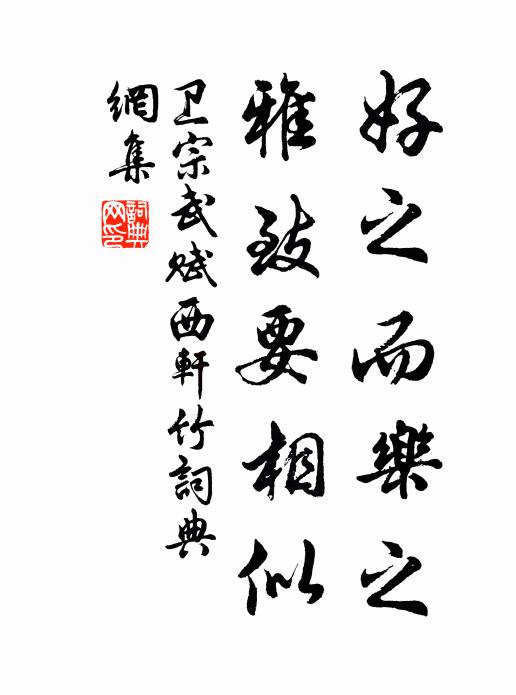 好之而樂之
雅致要相似
卫宗武赋西軒竹詞典
網集
詞典
网印